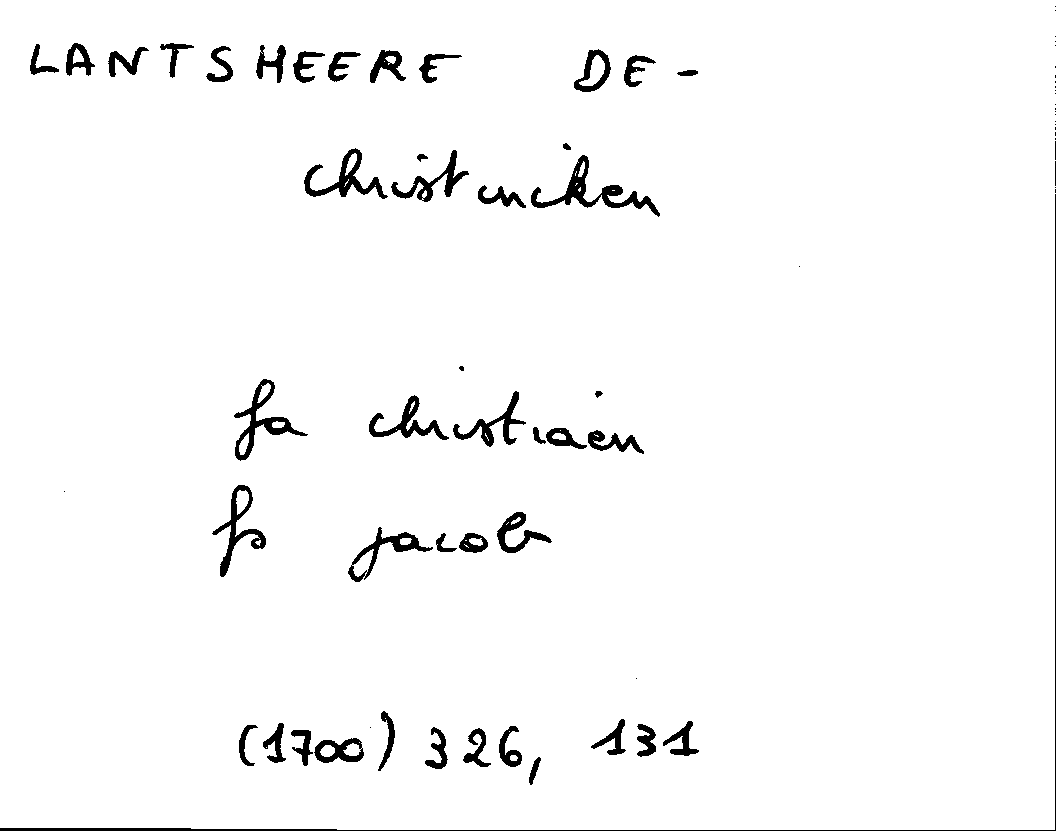 LANTSHEERE DE-
christinciken
fa christiaen
fs jacob
(1700) 326, 131